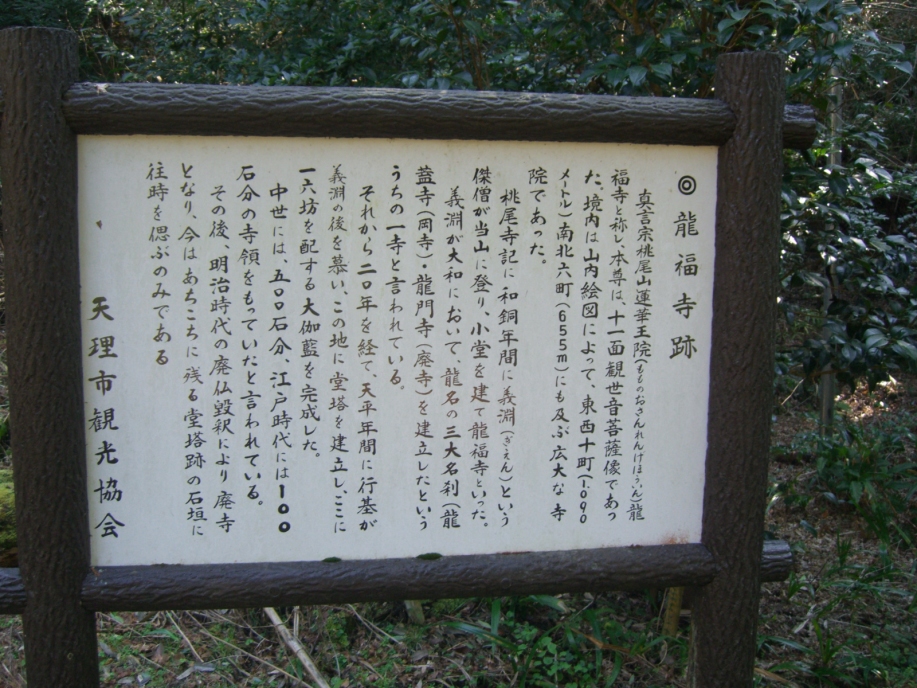 ◎龍福寺跡
真言宗桃尾山蓮華王院(もものおさんれんげほういん)龍
福寺と称し、本尊は、十一面観世音菩薩像であっ
た。境内は山内絵図によって、東西十町(1090
メートル)南北六町(655m)にも及ぶ広大な寺
院であった。
桃尾寺記に、和銅年間に義淵(ぎえん)という
傑僧が当山に登り、小堂を建て龍福寺といった。
義淵が大和において、龍名の三大名刹(龍
蓋寺(岡寺)・龍門寺(廃寺)を建立したという
うちの一寺と言われている。
それから二〇年を経て、天平年間に行基が
義淵の後を慕い、この地に堂塔を建立し、ここに
一六坊を配する大伽藍を完成した。
中世には、五〇〇石分、江戸時代には一〇〇
石分の寺領をもっていたと言われている。
その後、明治時代の廃仏毀釈により廃寺
となり、今はあちこちに残る堂塔跡の石垣に
往時を偲ぶのみである
天理市観光協会